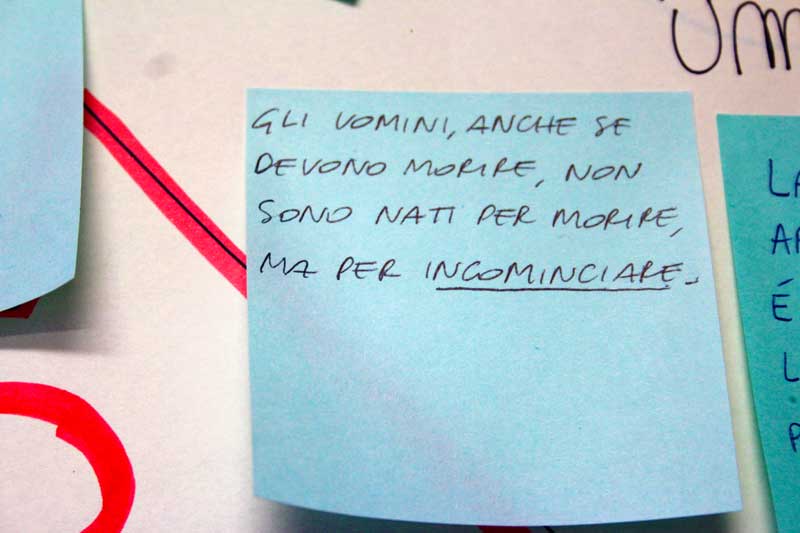 GLI UOMINI, ANCHE SE
DEVONO MORIRE, NON
SONO NATI PER MORIRE,
MA PER INCOMINCIARE.
LA
É